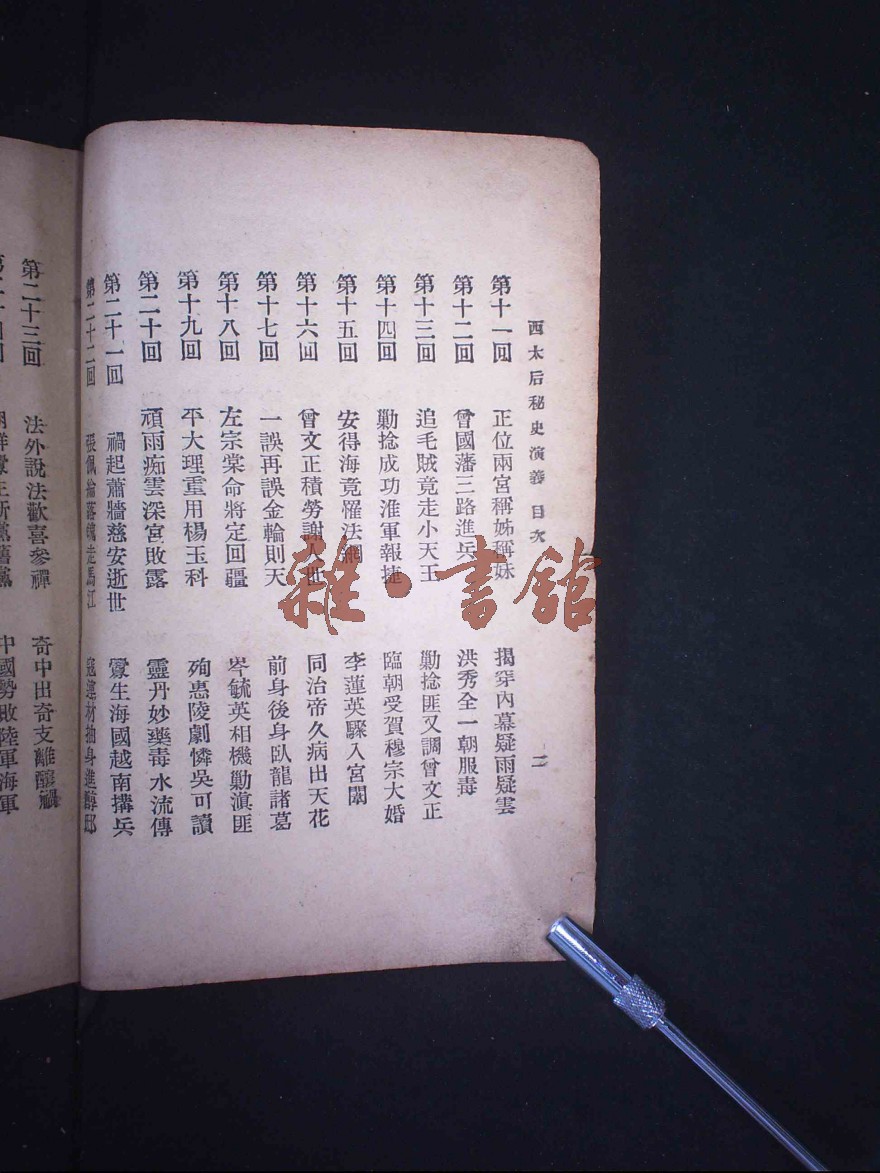 西太后秘史演義 目次 二
第十一回 正位兩宮稱姊稱妹 揭穿內幕疑雨疑雲
第十二回 曾國藩三路進兵 洪秀全一朝服毒
第十三回 追毛賊竟走小天王 勦捻匪又調曾文正
第十四回 勦捻成功淮軍報捷 臨朝受賀穆宗大婚
第十五回 安得海竟罹法網 李蓮英驟入宮闈
第十六回 曾文正積勞謝人世 同治帝久病出天花
第十七回 一誤再誤金輪則天 前身後身臥龍諸葛
第十八回 左宗棠命將定回疆 岑毓英相機勦滇匪
第十九回 平大理重用楊玉科 殉惠陵劇憐吳可讀
第二十回 頑雨痴雲深宮敗露 靈丹妙藥毒水流傳
第二十一回 禍起蕭牆慈安逝世 釁生海國越南搆兵
第二十二回 張佩綸落魄走馬江 寇連材抽身進醇邸
第二十三回 法外說法歡喜參禪 奇中出奇支離釀禍
中國勢敗陸軍海軍
雜·書館